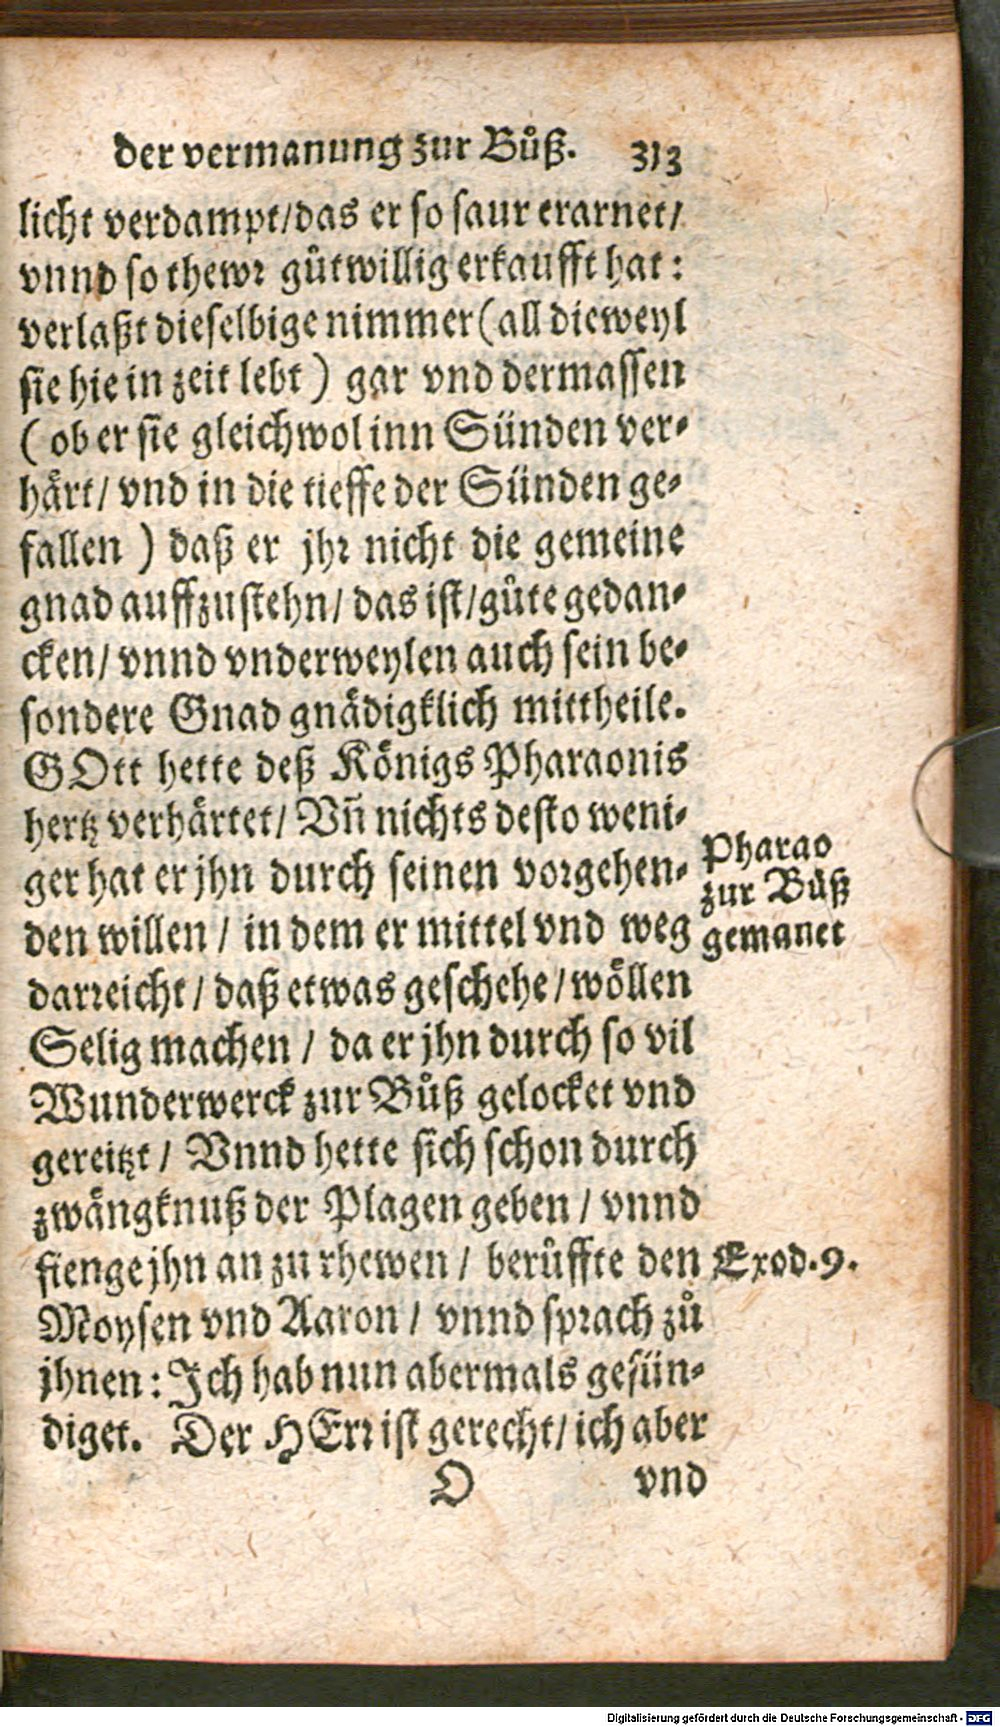 der vermanung zur Bůß. 313
licht verdampt/das er so saur erarnet/
vnnd so thewr gůtwillig erkaufft hat:
verlaßt dieselbige nimmer (all dieweyl
sie hie in zeit lebt) gar vnd dermassen
(ob er sie gleichwol inn Sünden ver-
härt/ vnd in die tieffe der Sünden ge-
fallen ) daß er jhr nicht die gemeine
gnad auffzustehn/ das ist/gůte gedan-
cken/ vnnd vnderweylen auch sein be-
sondere Gnad gnädigklich mittheile.
GOtt hette deß Königs Pharaonis
hertz verhärtet/ Vñ nichts desto weni-
ger hat er jhn durch seinen vorgehen-
den willen / in dem er mittel vnd weg
darreicht/ daß etwas geschehe/wöllen
Selig machen / da er jhn durch so vil
Wunderwerck zur Bůß gelocket vnd
gereitzt / Vnnd hette sich schon durch
zwängknuß der Plagen geben / vnnd
fienge jhn an zu rhewen / berůffte den
Moysen vnd Aaron / vnnd sprach zů
jhnen: Ich hab nun abermals gesün-
diget. Der HErr ist gerecht/ ich aber
O vnd
Pharao
zur Bůß
gemanet
Exod.9.
Digitalisierung gefördert durch die Deutsche Forschungsgemeinschaft - DFG